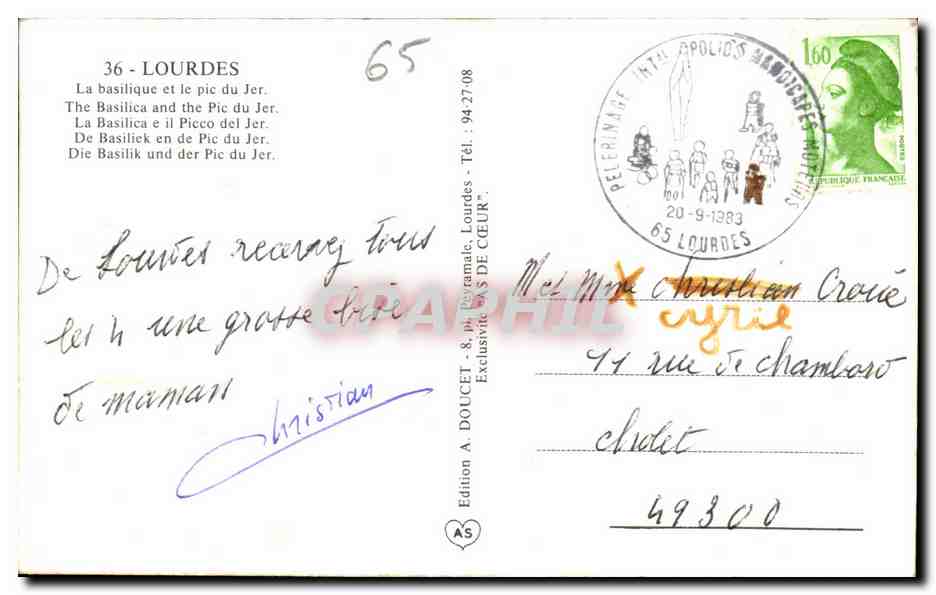 36 - LOURDES
La basilique et le pic du Jer.
The Basilica and the Pic du Jer.
La Basilica e il Picco del Jer.
De Basiliek en de Pic du Jer.
Die Basilik und der Pic du Jer.
65
De Lourdes recevez tous
les 4 une grosse bise
de maman
Christian
Edition A. DOUCET - 8, pl. Peyramale, Lourdes - Tél. : 94-27-08
Exclusivité "AS DE CŒUR".
AS
PELERINAGE INTN POLIOS HANDICAPES MOTEURS
20-9-1983
65 LOURDES
1,60
POSTES
REPUBLIQUE FRANÇAISE
M et Mme X Christian Croué
cyril
11 rue de Chambord
Cholet
49300
CPAPHIL